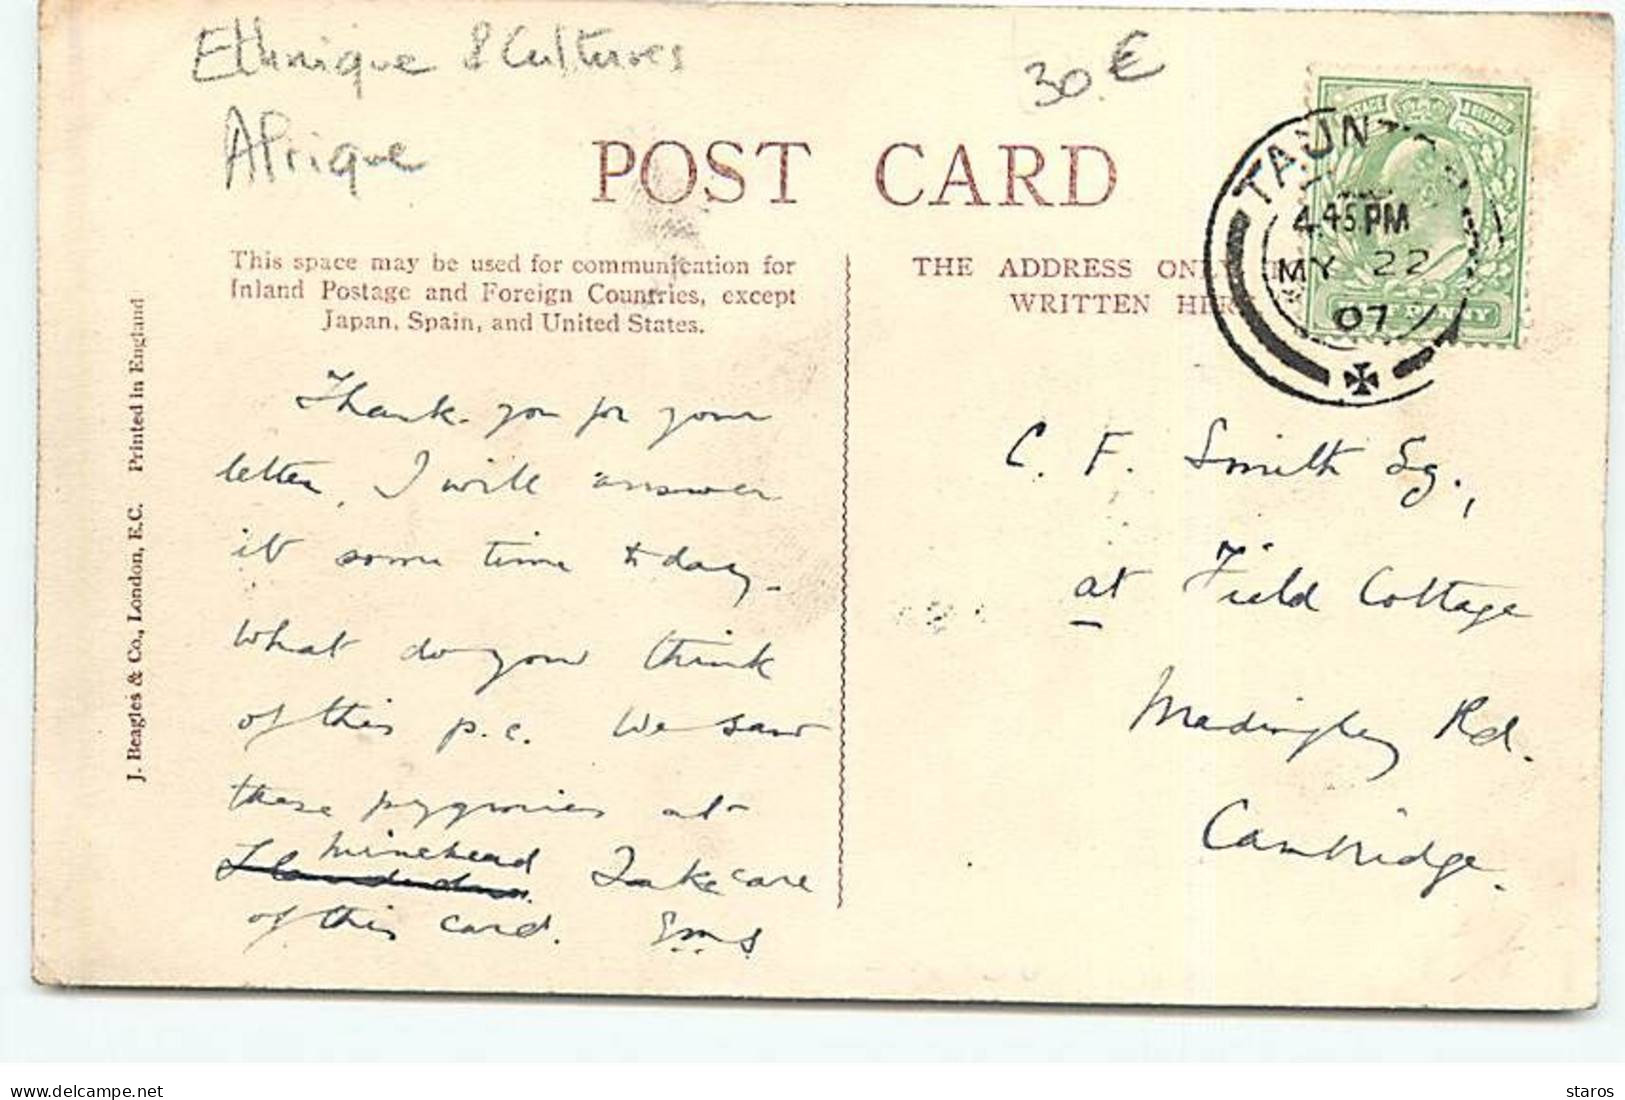 Ethnique & Cultures
Afrique
30.€
POST CARD
This space may be used for communication for
Inland Postage and Foreign Countries, except
Japan, Spain, and United States.
THE ADDRESS ONLY
WRITTEN HERE
TAUNTON
4.45 PM
MY 22
07
J. Beagles & Co., London, E.C. Printed in England
Thank you for your
letter, I will answer
it some time today.
What do you think
of this p.c. We saw
these pygmies at
Minehead
Take care
of this card. EMS
C. F. Smith Esq.,
at Field Cottage
Madingley Rd.
Cambridge.
www.delcampe.net
staros